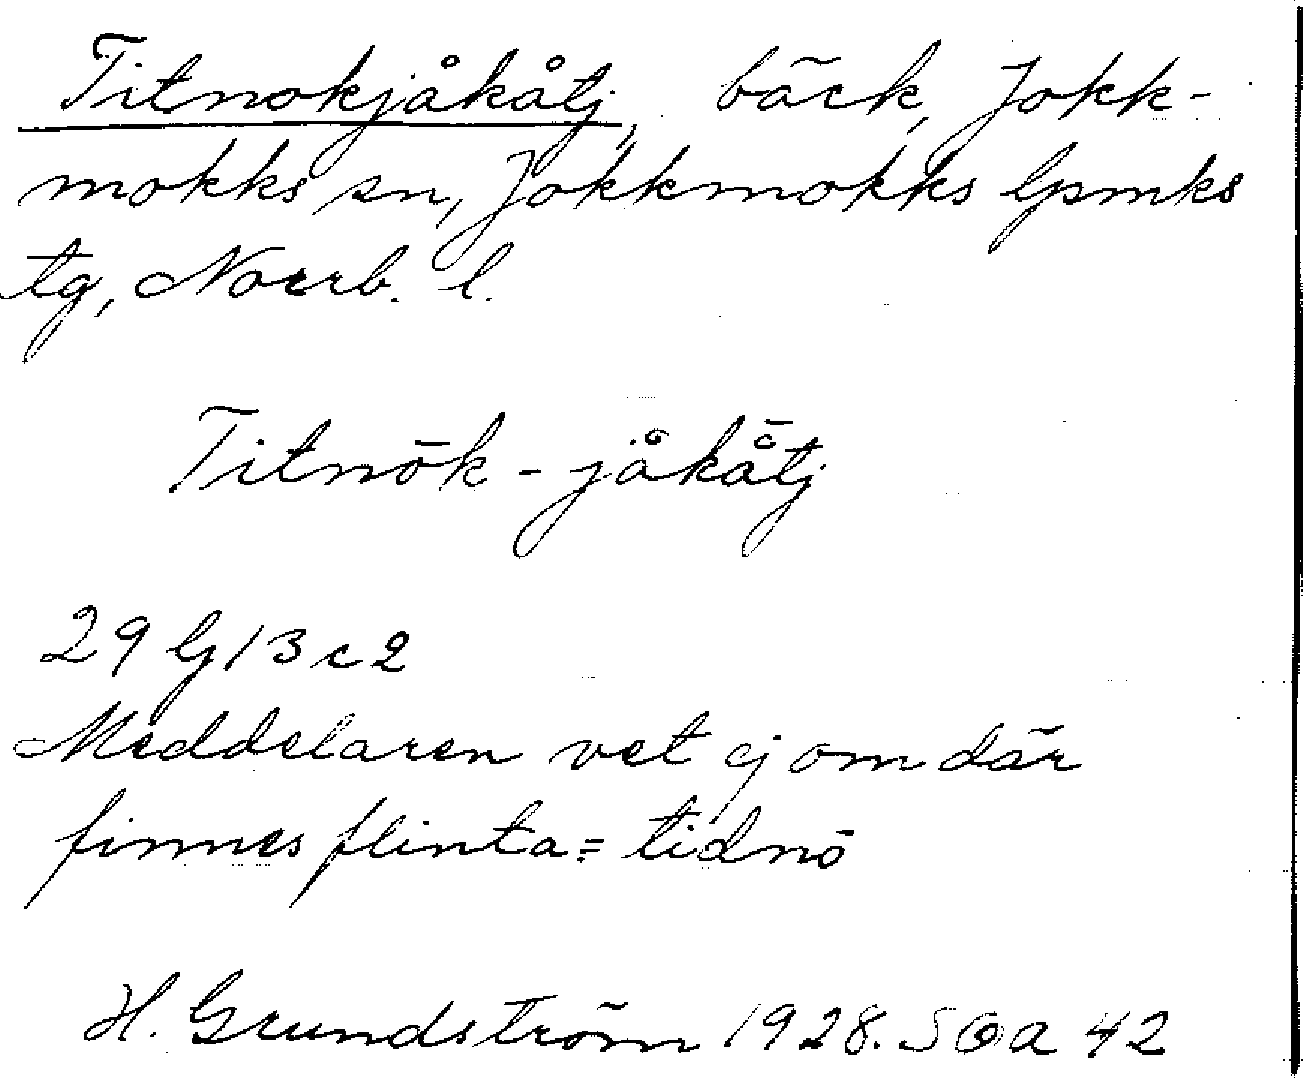 Titnokjåkåtj, bäck, Jokk-
mokks sn, Jokkmokks lpmks
tg, Norrb. l.
Titnōk - jåkå̄tj
29 G/3c2
Meddelaren vet ej om där
finnes flinta = tidnō
H. Grundström 1928. SOA 42